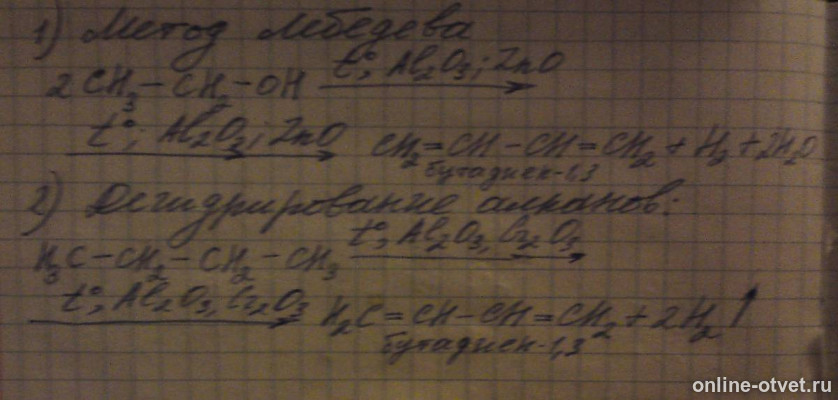 1) Метод Лебедева
2 CH₃ – CH₂ – OH t°; Al₂O₃; ZnO
t°; Al₂O₃; ZnO CH₂ = CH – CH = CH₂ + H₂ + 2H₂O
бутадиен-1,3
2) Дегидрирование алканов:
H₃C – CH₂ – CH₂ – CH₃ t°, Al₂O₃, Cr₂O₃
t°, Al₂O₃, Cr₂O₃ H₂C = CH – CH = CH₂ + 2H₂↑
бутадиен-1,3
online-otvet.ru